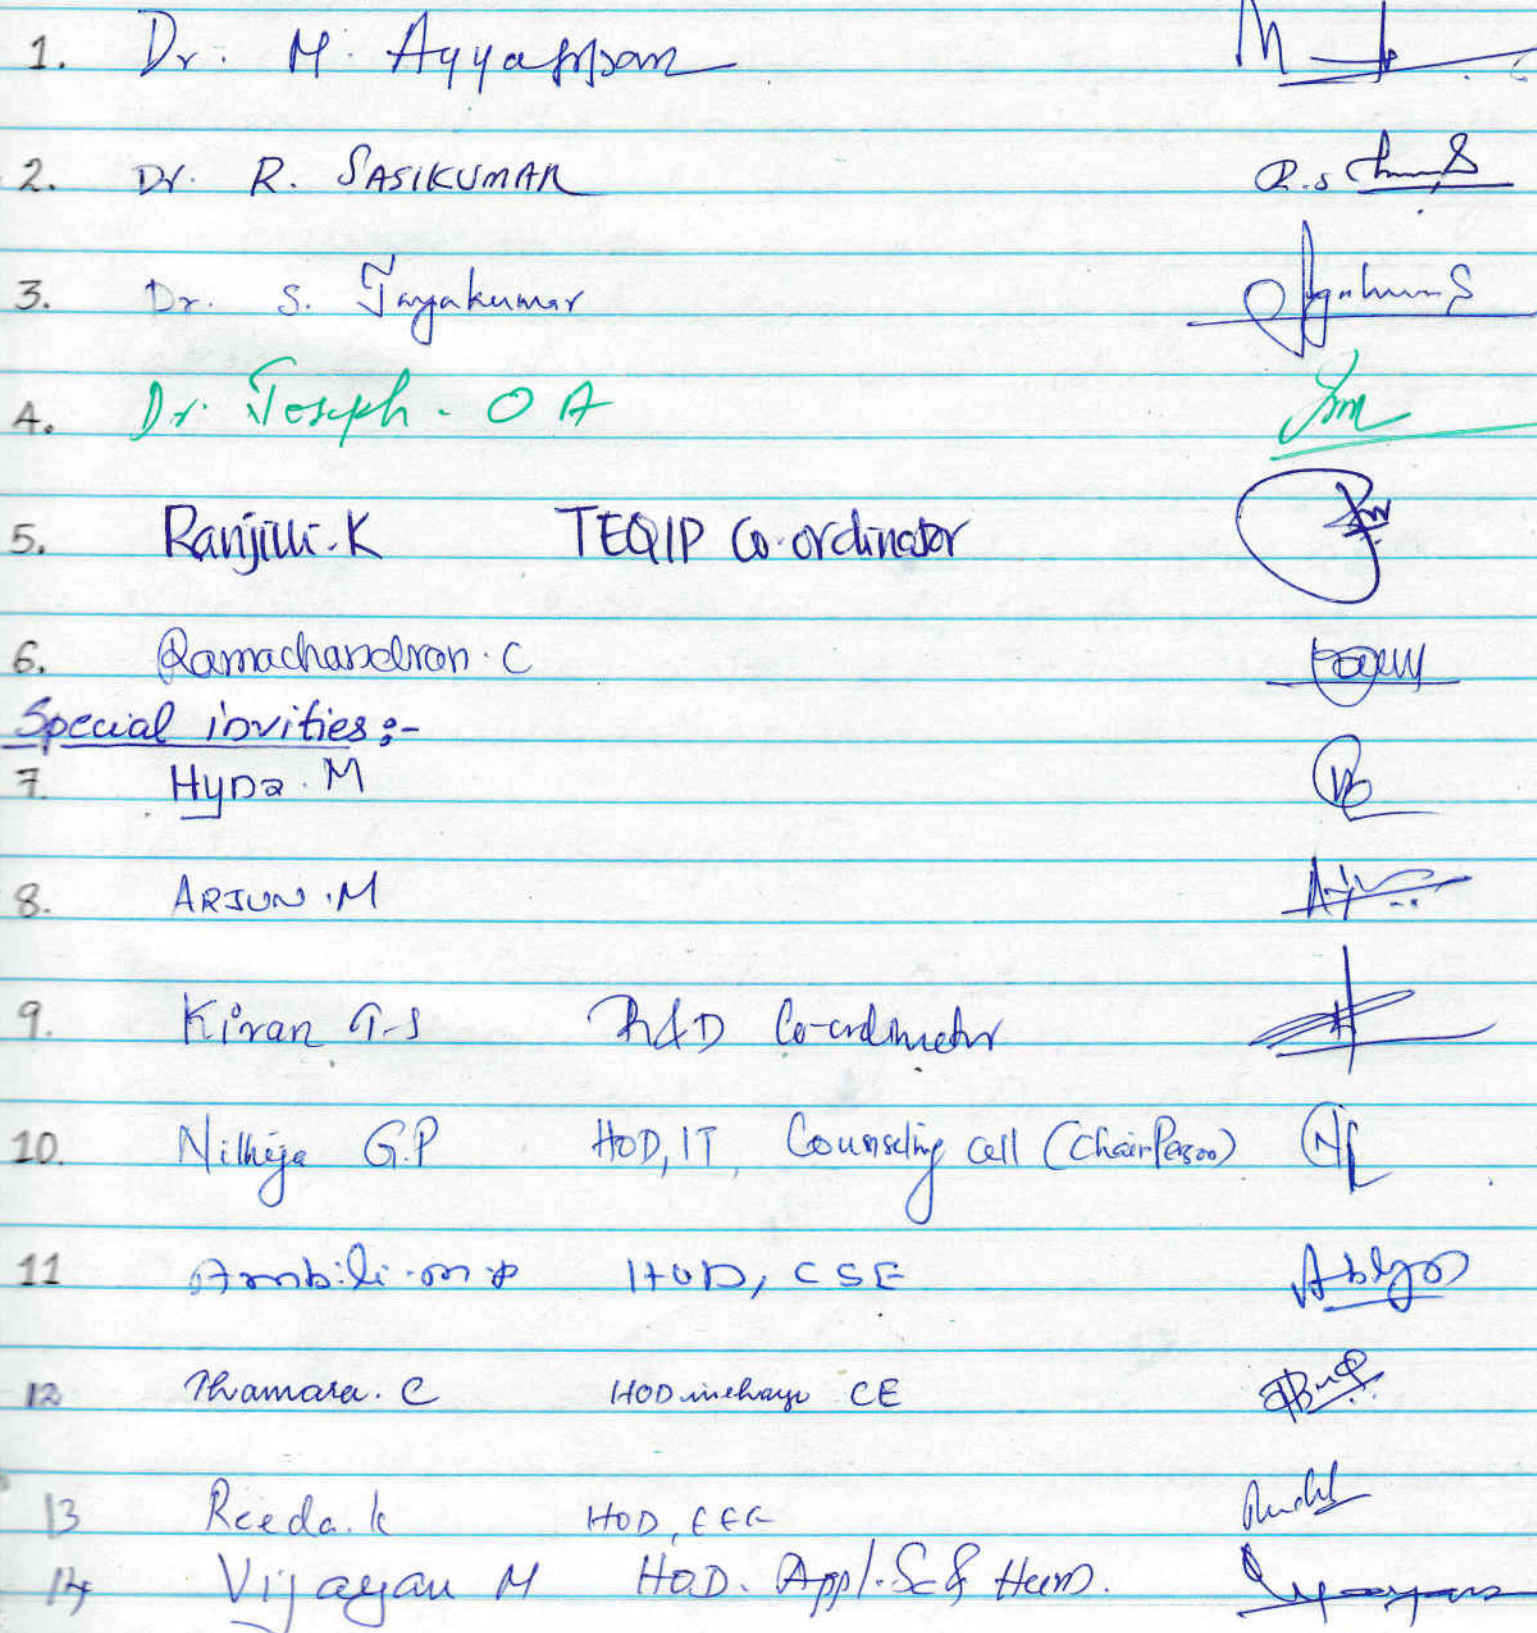 1. Dr. M. Ayyappan
2. Dr. R. SASIKUMAR
3. Dr. S. Jayakumar
4. Dr. Joseph - O A
5. Ranjilli. K TEQIP Co-ordinator
6. Ramachandran. C
Special invities :-
7. Hyna. M
8. ARJUN. M
9. Kiran T.S R&D Co-ordinator
10. Nithya G.P HOD, IT, Counseling cell (Chair Person)
11 Ambili. m p HOD, CSE
12 Thamara. C HOD incharge CE
13 Reeda. k HOD, EEE
14 Vijayan M HOD. Appl. Sc & Hum.